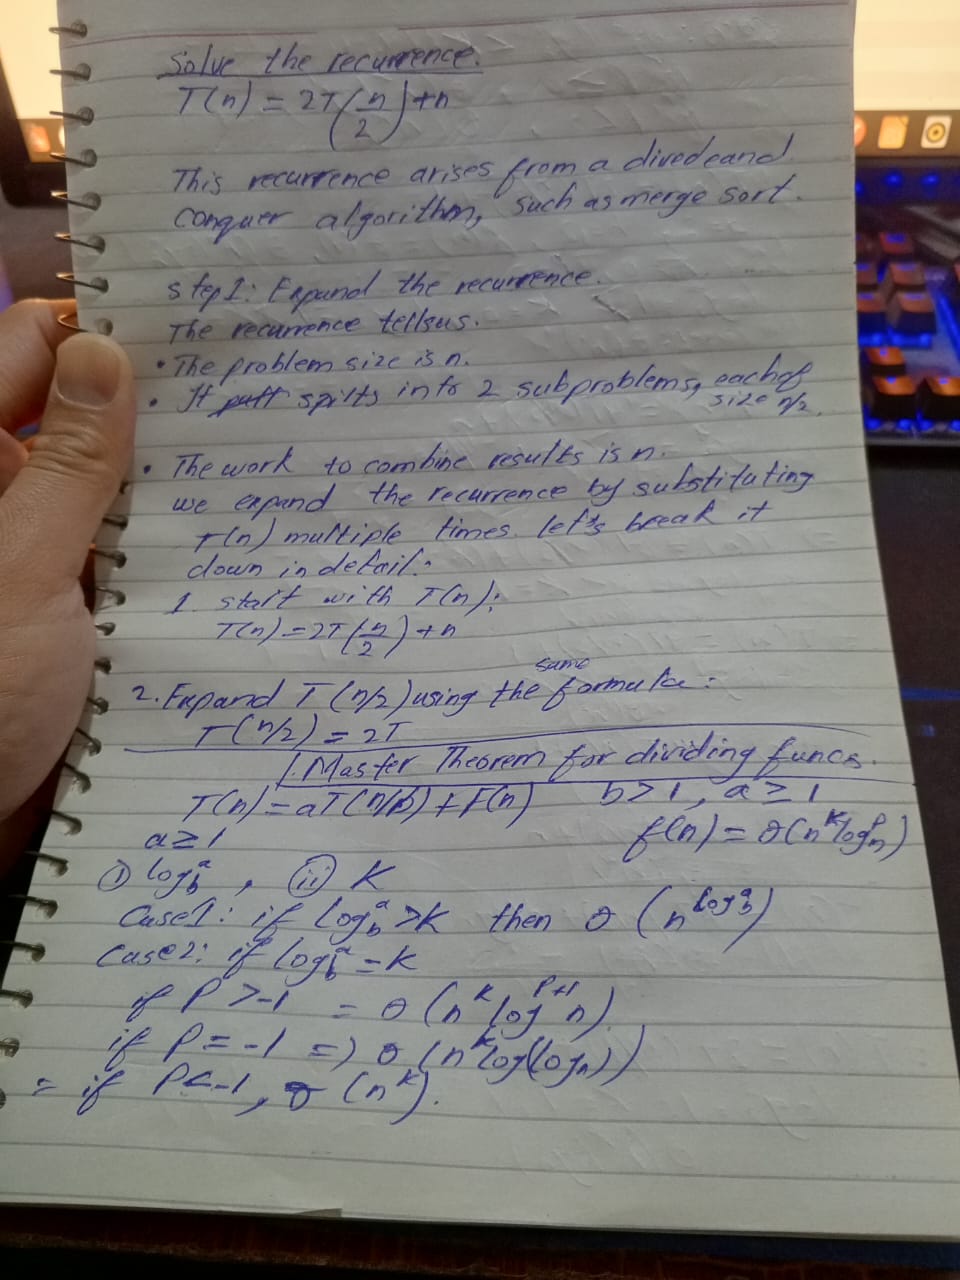 Solve the recurrence.
T(n) = 2T(n/2)+n
This recurrence arises from a divedeand
conquer algorithm, such as merge sort.
step1: Expand the recurrence.
The recurrence tellsus.
• The problem size is n.
• It spilts into 2 subproblems, each of
size n/2.
• The work to combine results is n.
we expand the recurrence by substituting
T(n) multiple times. let's break it
down in detail:
1. start with T(n):
T(n) = 2T(n/2)+n
same
2. Expand T(n/2) using the formula:
T(n/2) = 2T
1. Master Theorem for dividing funcs.
T(n) = aT(n/b) + F(n) b>1, a≥1
a≥1 f(n) = θ(n^k log^p n)
① log_b^a, ⓘⓘ K
Case1: if log_b^a > K then θ(n^log_b^a)
Case2: if log_b^a = K
if P > -1 = θ(n^k log^p+1 n)
if P = -1 => θ(n^k log(log n))
= if P < -1, θ(n^k).